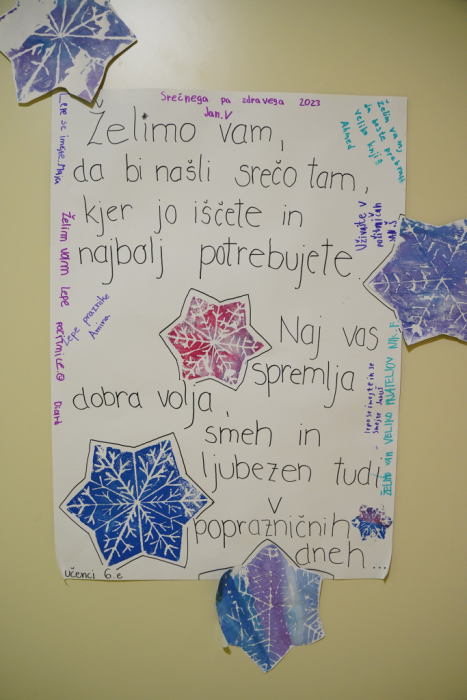 Srečnega pa zdravega 2023
Jan.V
Želimo vam,
da bi našli srečo tam,
kjer jo iščete in
najbolj potrebujete.
Naj vas
spremlja
dobra volja,
smeh in
ljubezen tudi
v
popražničnih
dneh...
učenci 6.e
Lepe se imejte. Maya
Želim vam lepe počitnice
Lepe praznike
Amina
Želim vam,
da boste prebrali
veliko knjig
Ahmed
Uživajte v
počitnicah
ŽELIM VAM VELIKO PRIJATELJOV